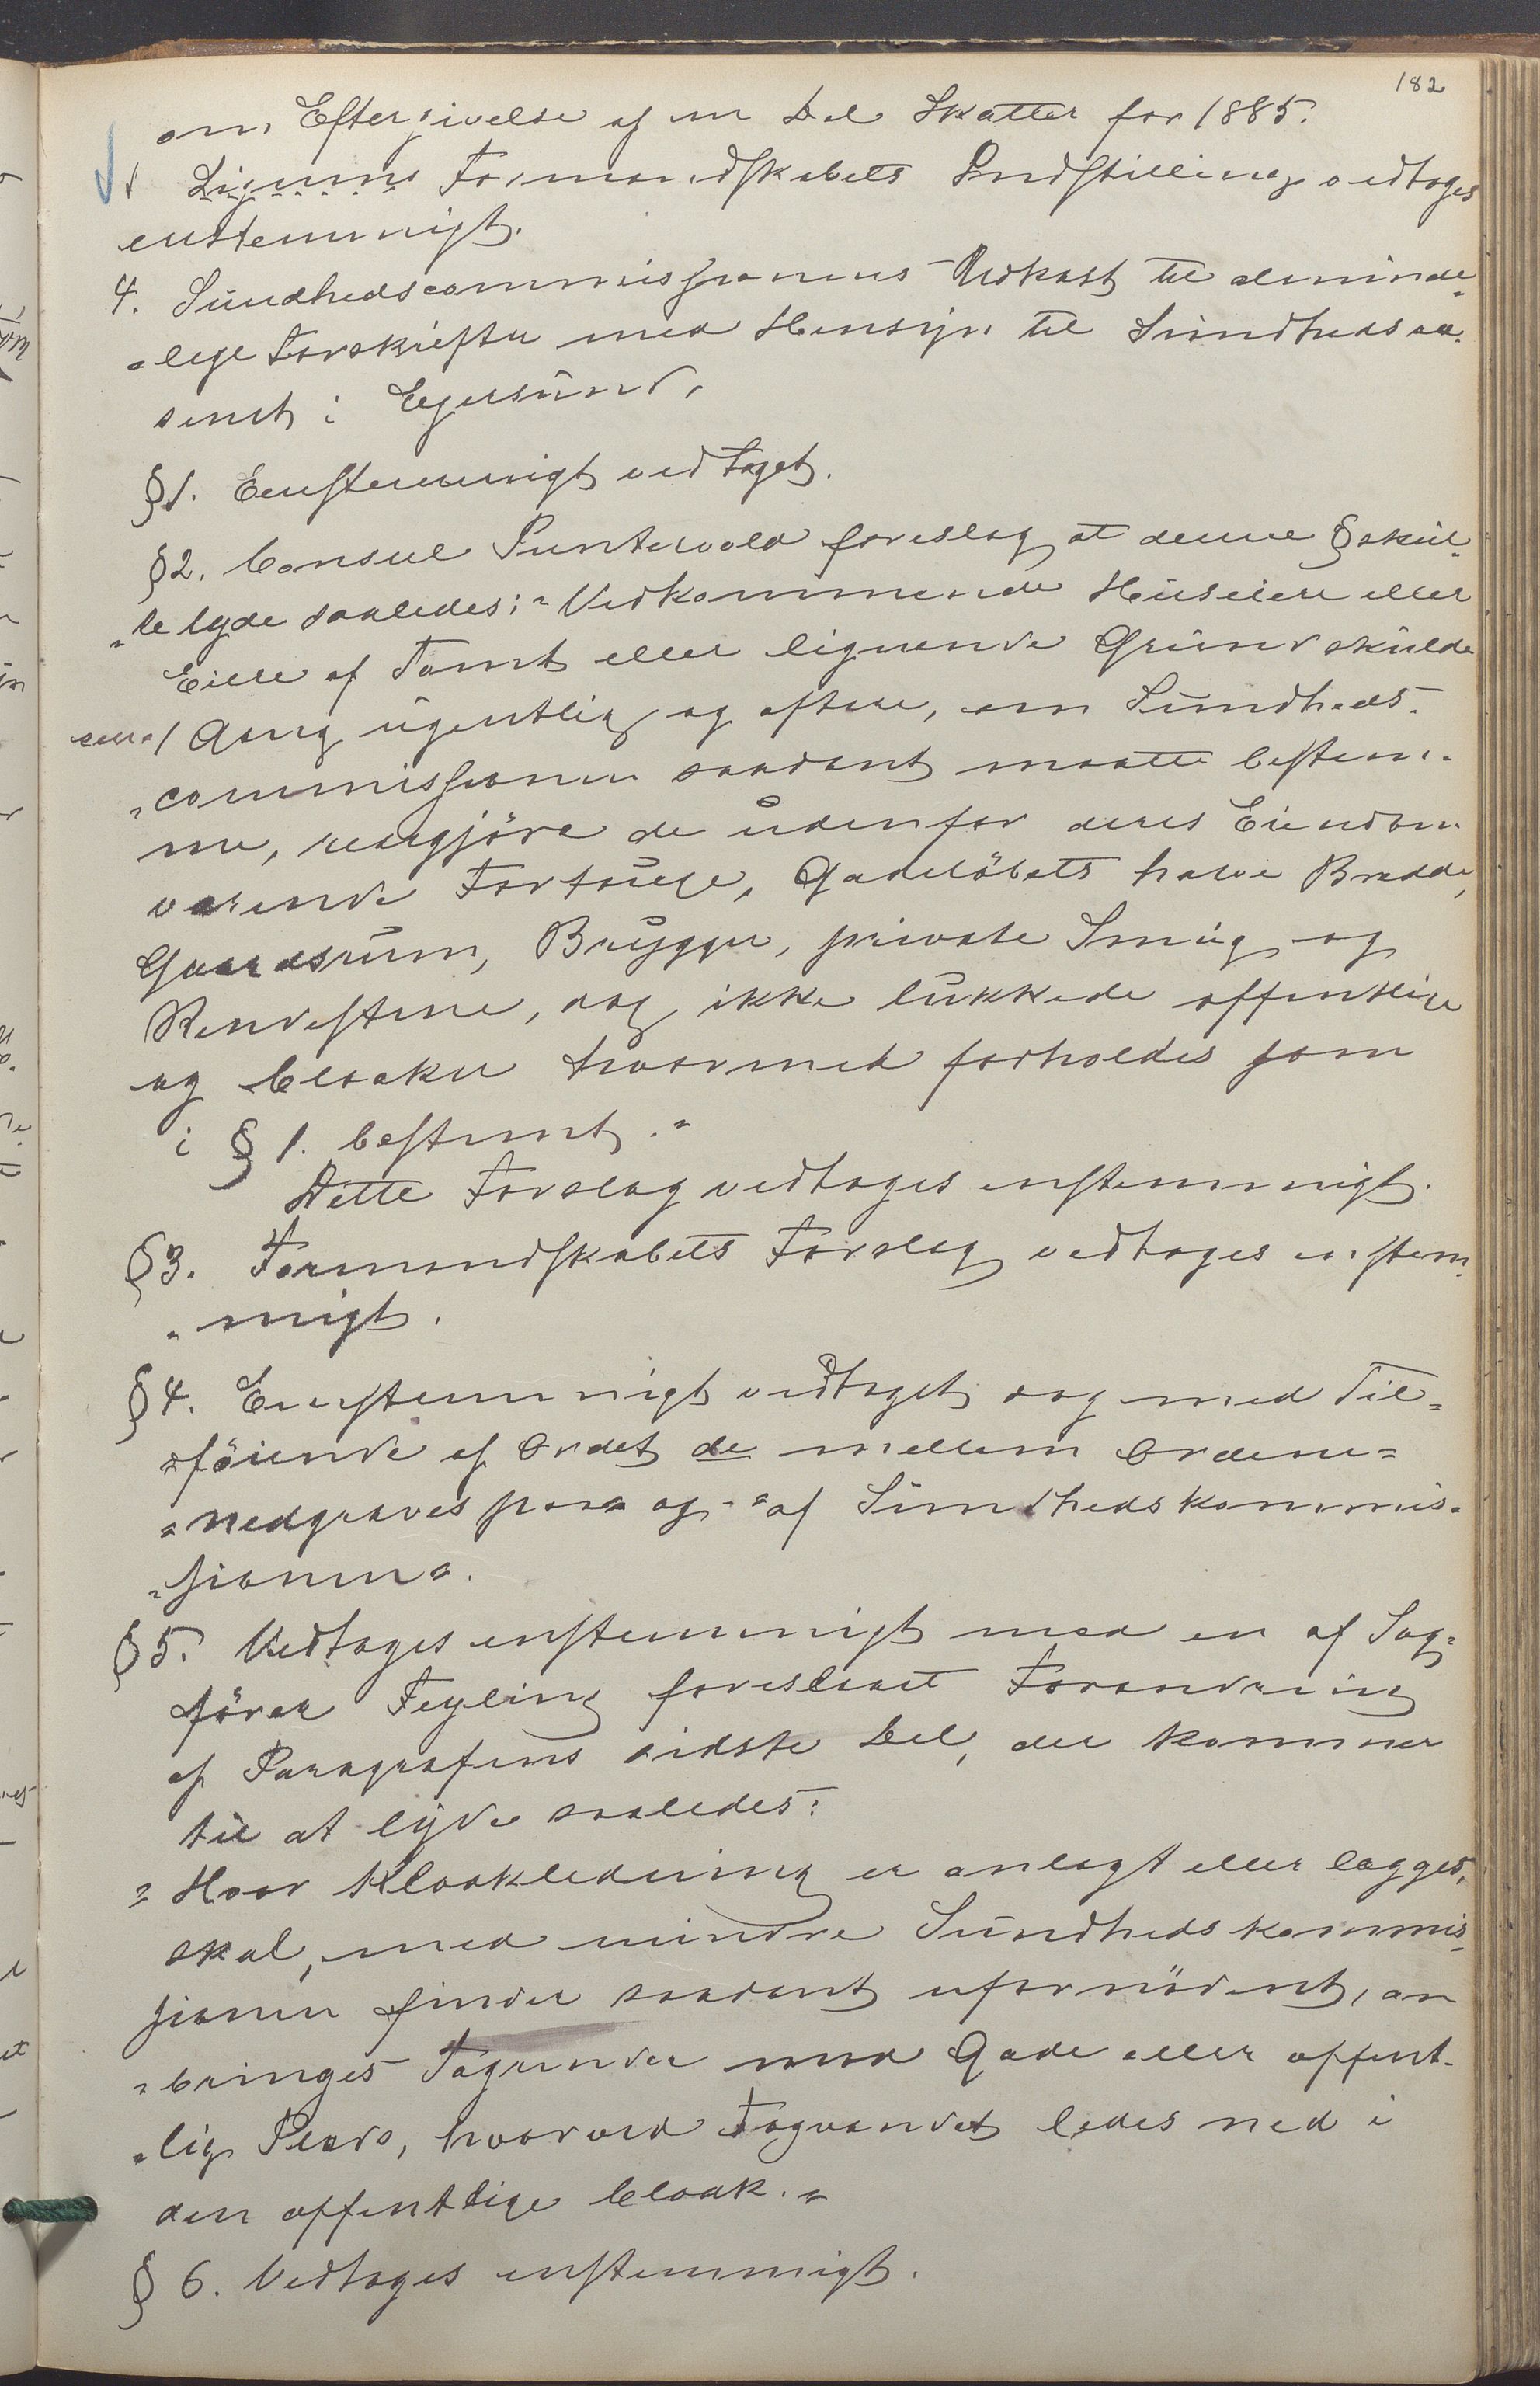 182
om Eftergivelse af en Del Skatter for 1885.
Ligning Formandskabets Indstilling vedtages
enstemmigt.
4. Sundhedscommissionens Udkast til alminde-
"lige Forskrifter med Hensyn til Sundhedsvæ-
senet i Egersund.
§1. Eenstemmigt vedtaget.
§2. Consul Puntervold foreslog at denne § skul-
"le lyde saaledes: "Vedkommende Huseiere eller
Eiere af Tomt eller lignende Grund skulde
een 1 Gang ugentlig og oftere, om Sundheds-
"commissionen saadant maatte bestem-
me, rengjöre de udenfor deres Eiendom
værende Fortouge, Gadelöbets halve Bredde,
Gaardsrum, Brygger, private Smug og
Rendestene, dog ikke lukkede offentlige
og Cloaker hvormed forholdes som
i § 1. bestemt."
Dette Forslag vedtages enstemmigt.
§3. Formandskabets Forslag vedtages enstem-
"migt.
§4. Eenstemmigt vedtaget dog med Til-
"föiende af Ordet de mellem Ordene "
"nedgraves paa og "af Sundhedskommis-
"sionen".
§5. Vedtages enstemmigt med en af Sag-
förer Feyling foreslaaet Forandring
af Paragrafens sidste Del, der kommer
til at lyde saaledes:
"Hvor Kloakledning er anlagt eller lægges,
skal, med mindre Sundhedskommis-
sionen finder saadant ufornödent, an
"bringes Tagrender mod Gade eller offent-
"lig Plads, hvorved Tagvandet ledes ned i
den offentlige Cloak."
§ 6. Vedtages enstemmigt.